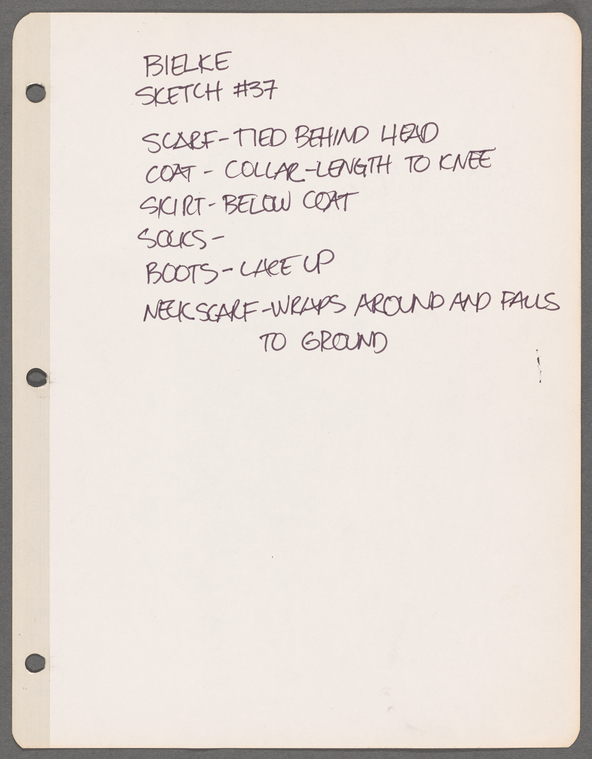 BIELKE
SKETCH #37
SCARF-TIED BEHIND HEAD
COAT - COLLAR-LENGTH TO KNEE
SKIRT-BELOW COAT
SOCKS-
BOOTS-LACE UP
NECKSCARF-WRAPS AROUND AND FALLS
TO GROUND